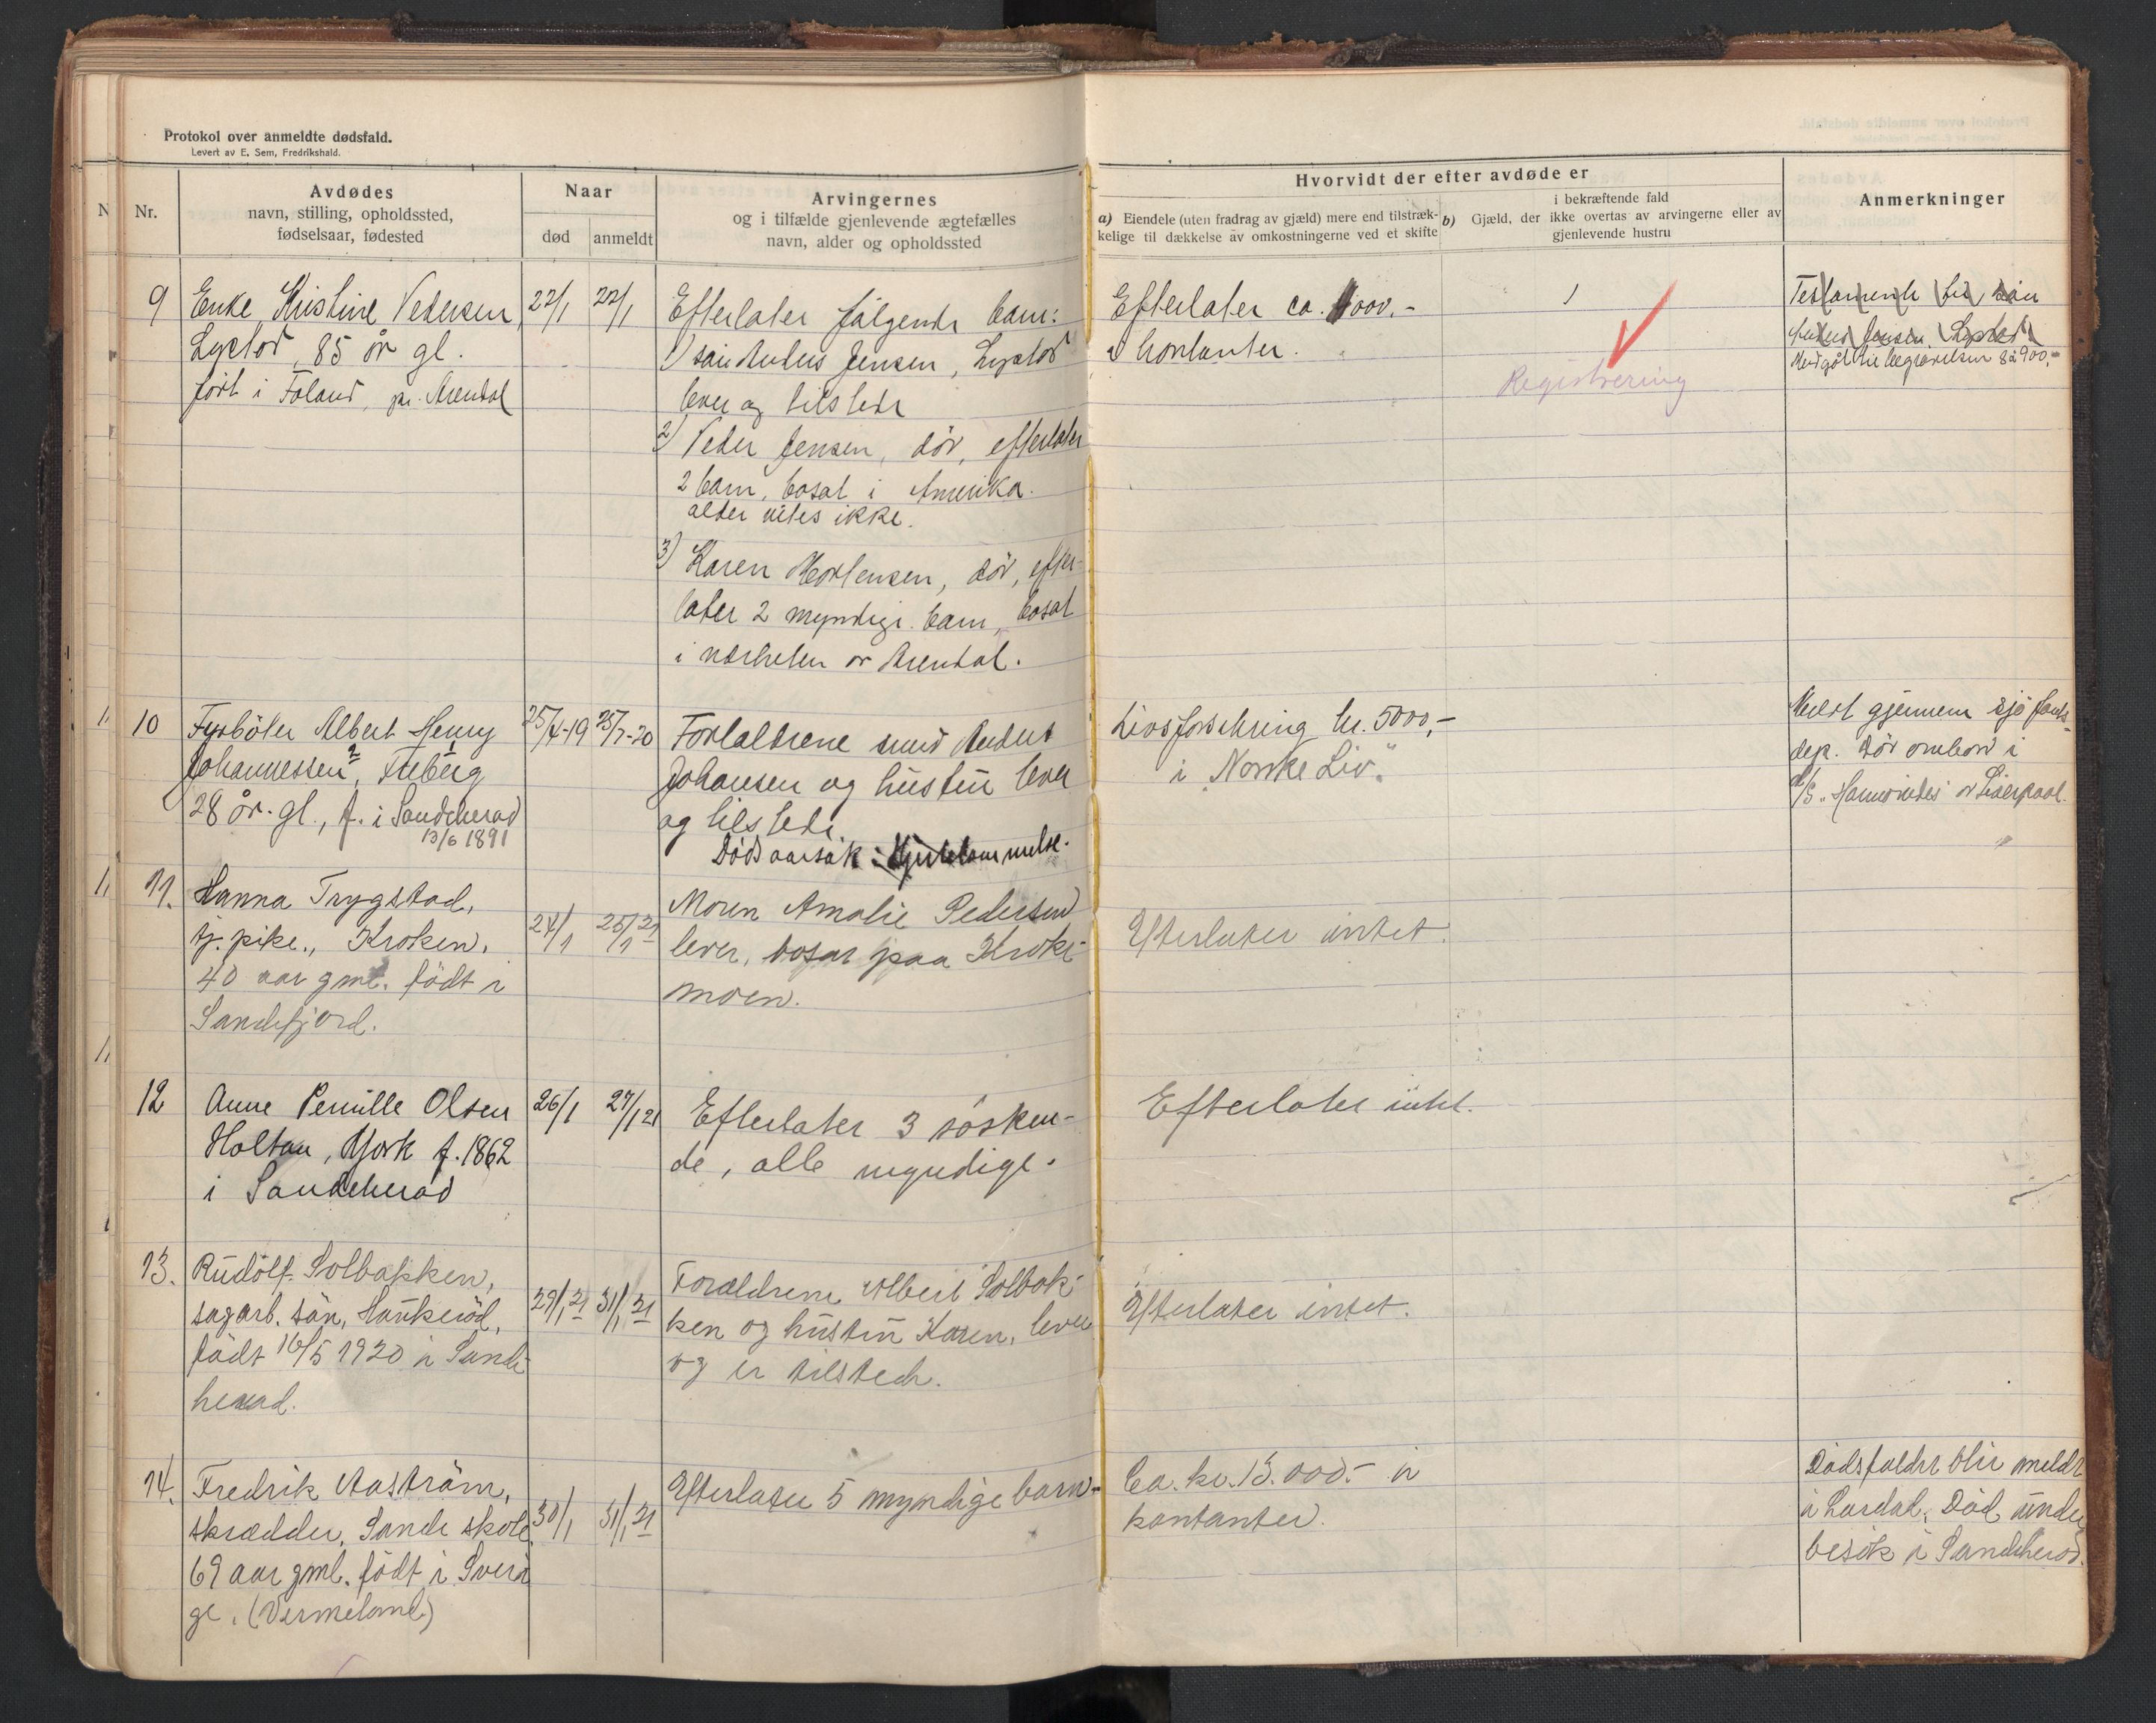 Protokol over anmeldte dødsfald.
Levert av E. Sem, Fredrikshald.
Nr.
Avdødes
navn, stilling, opholdssted,
fødselsaar, fødested
Naar
død
anmeldt
Arvingernes
og i tilfælde gjenlevende ægtefælles
navn, alder og opholdssted
Hvorvidt der efter avdøde er
a) Eiendele (uten fradrag av gjæld) mere end tilstræk-
kelige til dækkelse av omkostningerne ved et skifte
i bekræftende fald
b) Gjæld, der ikke overtas av arvingerne eller av
gjenlevende hustru
Anmerkninger
9
Enke Kristine Pedersen,
85 år gl.
født i Foland, pr. Arendal
22/1
22/1
Efterlater følgende barn:
1) sön Anders Jensen,
lever og tilstede
2) Peder Jensen, död, efterlater
2 barn, bosat i Amerika.
alder vites ikke.
3) Karen Mortensen, död, efter-
later 2 myndige barn, bosat
i nærheten av Arendal.
Efterlater ca. 1000.-
i kontanter.
Registrering
Testamente til sön
Anders Jensen,
Medgåt til begravelsen 900,-
10
Fyrböter Albert Henry
Johannessen, Freberg
28 år. gl., f. i Sandeherad
13/6 1891
25/4-19
25/1-20
Forældrene smed Anders
Johansen og hustru lever
og tilstede
Dödsaarsak:
Livsforsikring kr. 5000,-
i "Norske Liv".
Meldt gjennem sjöfarts-
dep. Död ombord i
D/S. av Liverpool.
11.
Hanna Trygstad,
tj. pike., Kroken,
40 aar gml. födt i
Sandefjord.
24/1
25/1 21
Moren Amalie Pedersen
lever, bosat paa Krok-
moen.
Efterlater intet.
12
Anne Pernille Olsen
Holtan, f. 1862
i Sandeherad
26/1
27/1 21
Efterlater 3 sösken-
de, alle myndige.
Efterlater intet.
13.
Rudolf Solbakken,
sagarb. sön, Haukeröd,
födt 16/5 1920 i Sande-
herad.
29/1 21
31/1 21
Forældrene Albert Solbak-
ken og hustru Karen, lever
og er tilstede.
Efterlater intet.
14.
Fredrik Aaström,
skrædder, Sande skole,
69 aar gml. födt i Sveri-
ge. (Vermeland)
30/1
31/1 21
Efterlater 5 myndige barn.
Ca. kr. 15.000.- i
kontanter.
Dödsfaldet blir meldt
i Lardal. Död under
besök i Sandeherad.